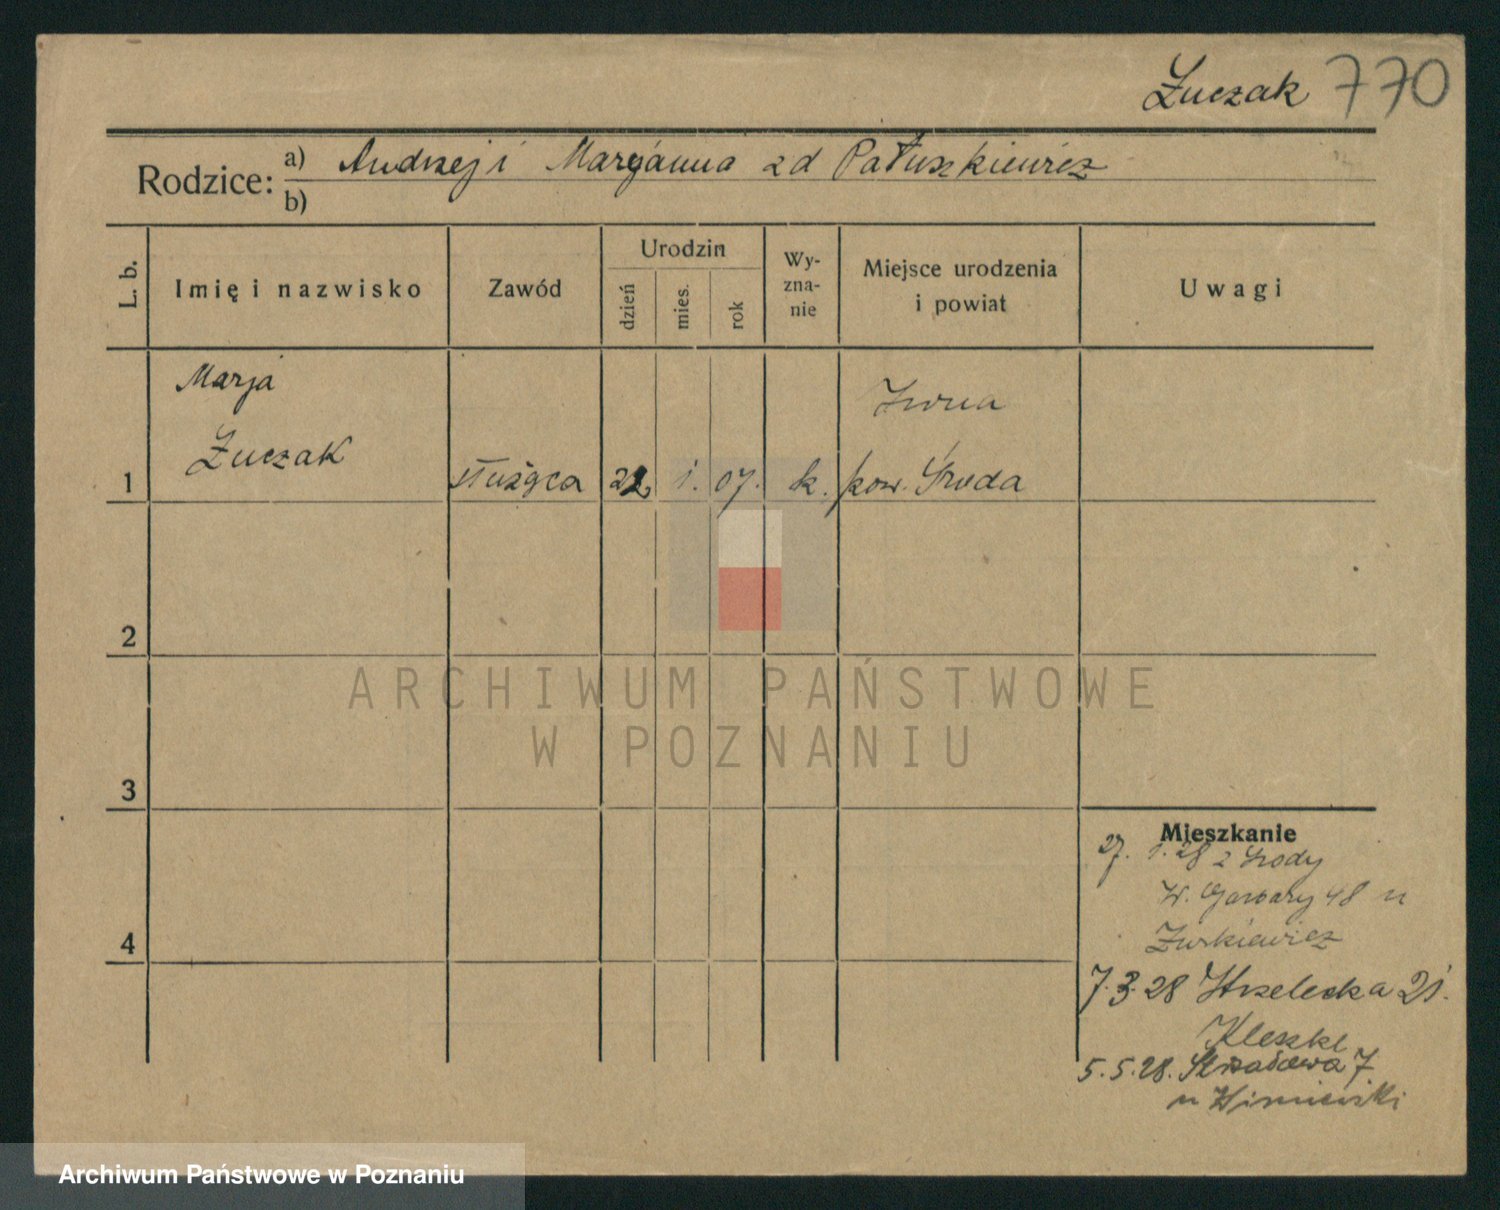 Żuczak 770
Rodzice: a) Andrzej i Marjanna zd Patuszkiewicz
b)
L. b.
Imię i nazwisko
Zawód
Urodzin
dzień
mies.
rok
Wy-
zna-
nie
Miejsce urodzenia
i powiat
Uwagi
1
Marja
Żuczak
służąca
22 1. 07. k.
pow. Środa
2
3
4
Mieszkanie
27. 1. 28 z Środy
W. Garbary 48 u
Żurkiewicz
7.3.28 Strzelecka 21.
5.5.28. Strzałowa 7
u
ARCHIWUM PAŃSTWOWE
W POZNANIU
Archiwum Państwowe w Poznaniu